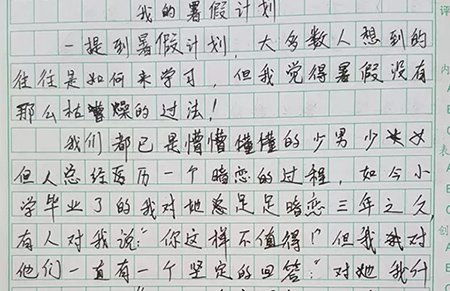 我的暑假计划
一提到暑假计划，大多数人想到的
往往是如何来学习，但我觉得暑假没有
那么枯燥的过法！
我们都已是懵懵懂懂的少男少女
但人总经历一个暗恋的过程，如今小
学毕业了的我对她足足暗恋三年之久，
有人对我说：“你这样不值得！”但我对
他们一直有一个坚定的回答：“对她我什
评
内
表
创